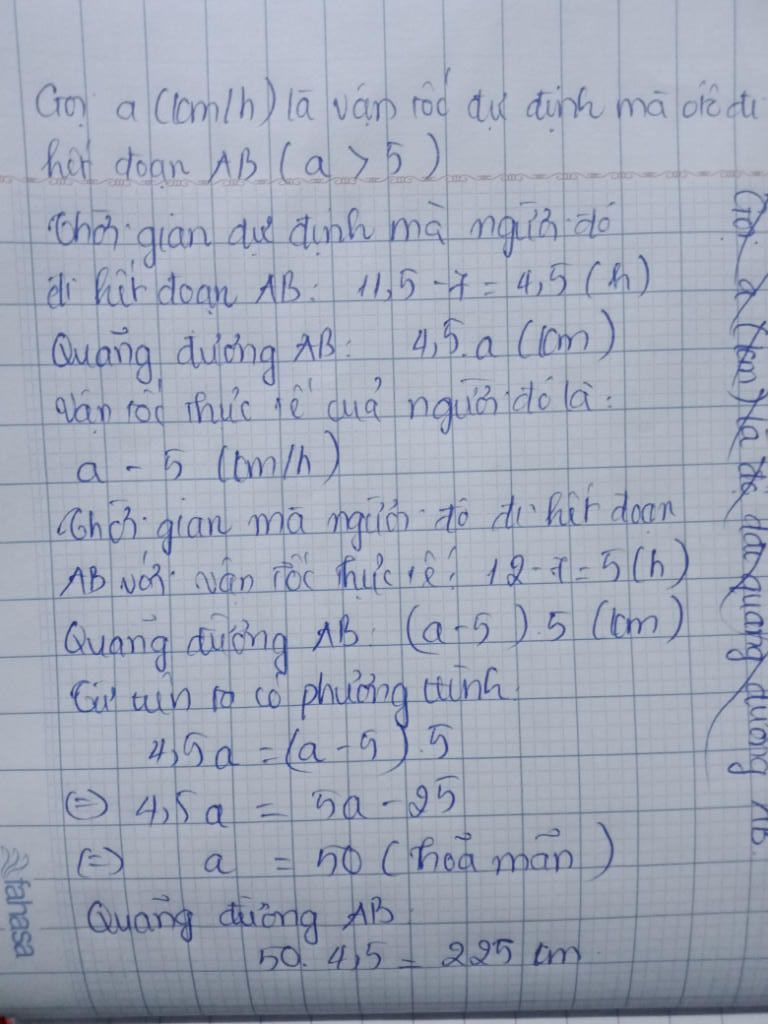 Gọi a (km/h) là vận tốc dự định mà để đi
hết đoạn AB (a > 5)
Thời gian dự định mà người đó
đi hết đoạn AB: 11,5 - 7 = 4,5 (h)
Quãng đường AB: 4,5.a (km)
Vận tốc thực tế quả người đó là:
a - 5 (km/h)
Thời gian mà người đó đi hết đoạn
AB với vận tốc thực tế: 12 - 7 = 5 (h)
Quãng đường AB: (a - 5).5 (km)
Từ trên ta có phương trình
4,5a = (a - 5).5
⇔ 4,5a = 5a - 25
⇔ a = 50 (thoả mãn)
Quãng đường AB
50. 4,5 = 225 km
Gọi a (km) là độ dài quãng đường AB.
fahasa